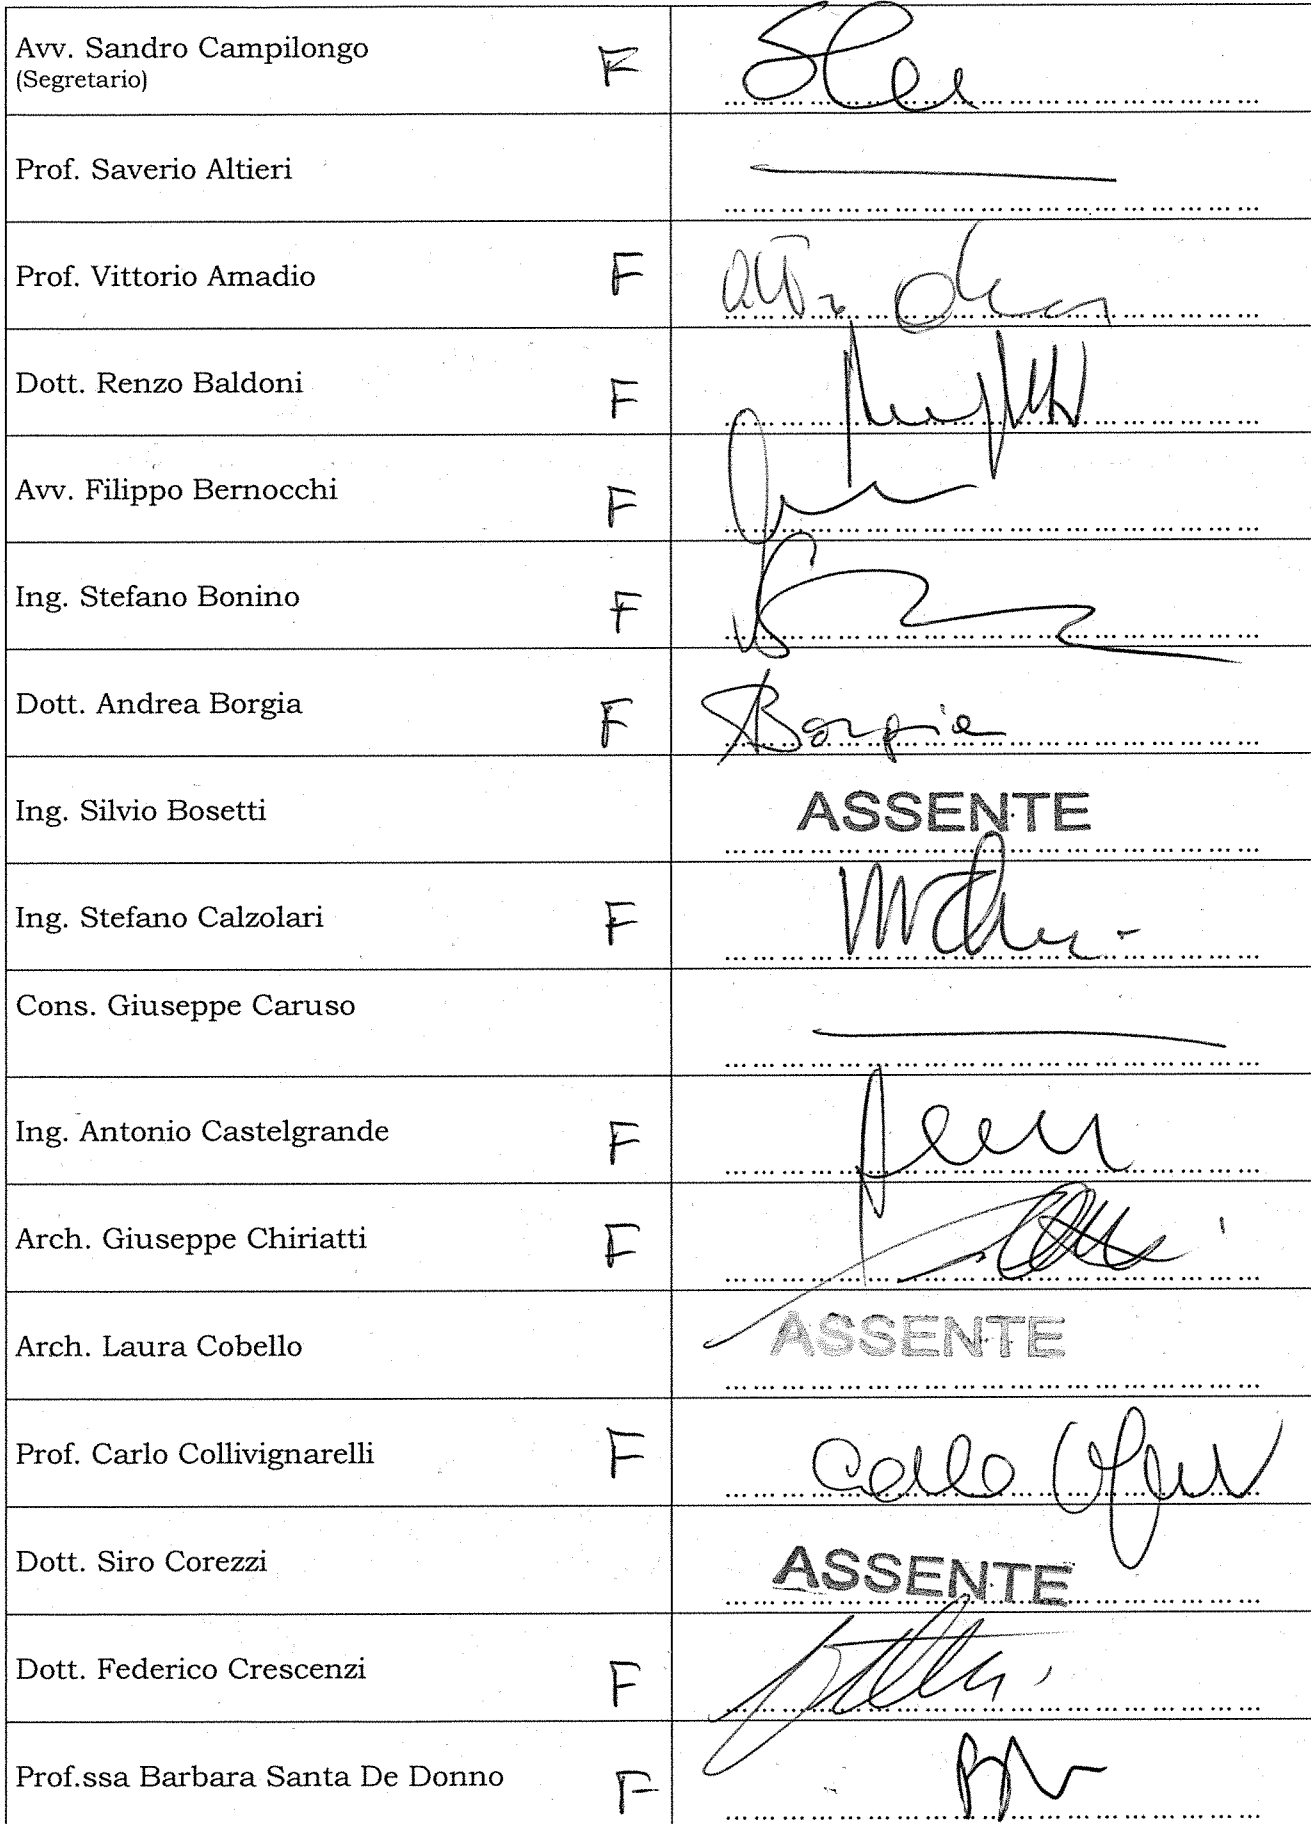 Avv. Sandro Campilongo F
(Segretario)
Prof. Saverio Altieri
Prof. Vittorio Amadio F
Dott. Renzo Baldoni F
Avv. Filippo Bernocchi F
Ing. Stefano Bonino F
Dott. Andrea Borgia F Borgia
Ing. Silvio Bosetti ASSENTE
Ing. Stefano Calzolari F
Cons. Giuseppe Caruso
Ing. Antonio Castelgrande F
Arch. Giuseppe Chiriatti F
Arch. Laura Cobello ASSENTE
Prof. Carlo Collivignarelli F Carlo
Dott. Siro Corezzi ASSENTE
Dott. Federico Crescenzi F
Prof.ssa Barbara Santa De Donno F